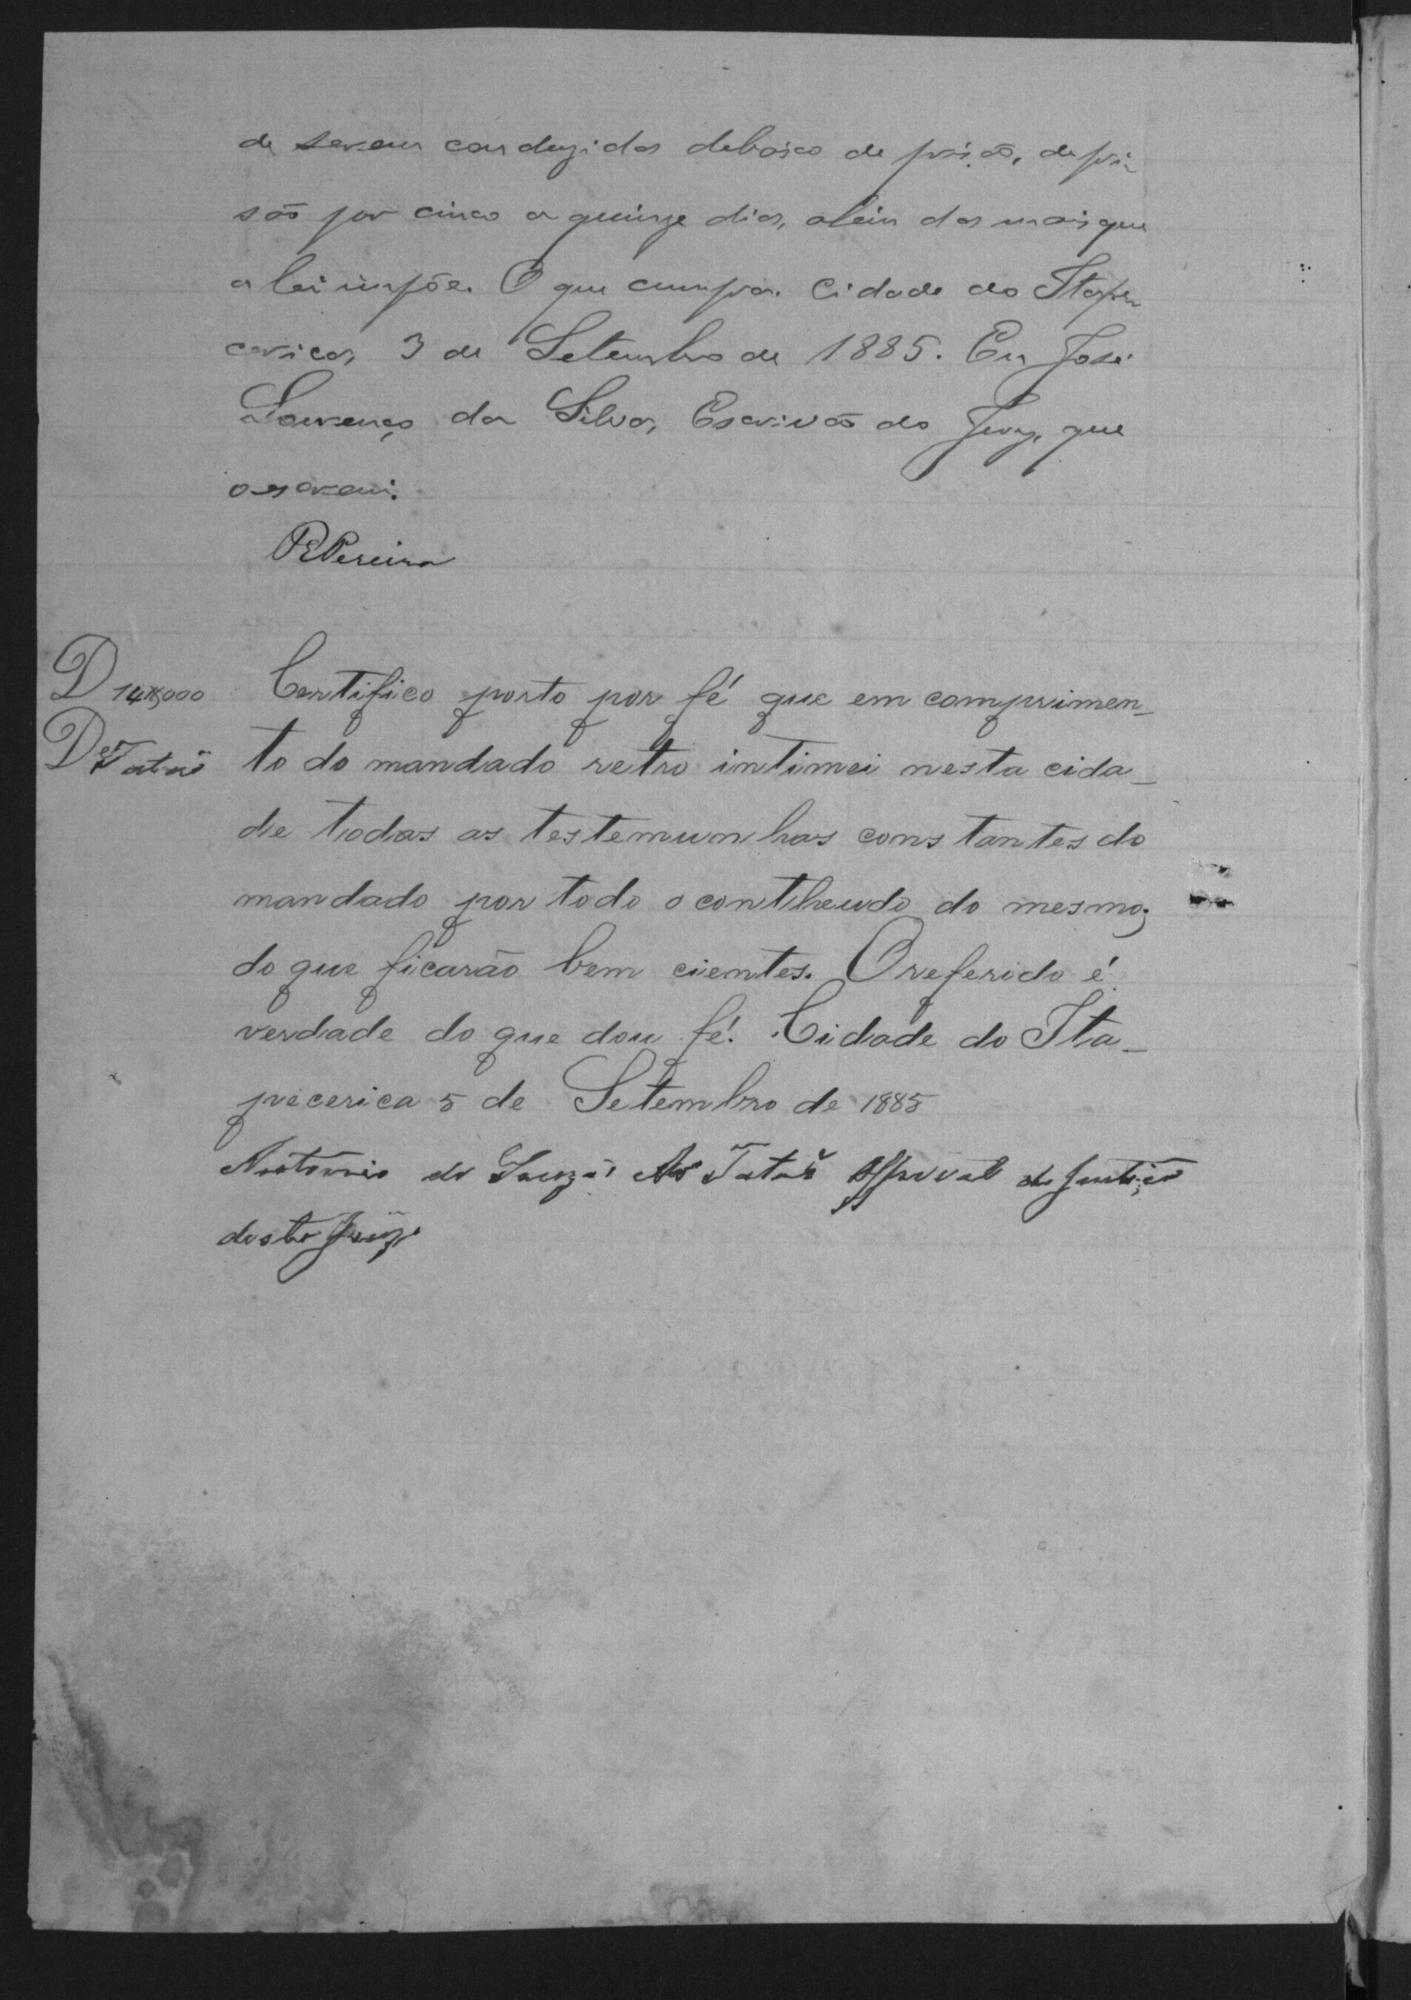 de serem conduzidas debaixo de prisão, de pri-
são por cinco a quinze dias, alem das mais que
a lei impõe. O que cumpra. Cidade do Itape
cerica, 3 de Setembro de 1885. Eu José
Lourenço da Silva, Escrivão do Jury, que
o escrevi.
REPereira
D 14$000
Certifico porto por fé que em comprimen-
to do mandado retro intimei nesta cida-
de todas as testemunhas constantes do
mandado por todo o contheudo do mesmo;
do que ficarão bem cientes. O referido é
verdade do que dou fé. Cidade do Ita-
pecerica 5 de Setembro de 1885
Antonio de Souza Official de Justiça
deste Juizo